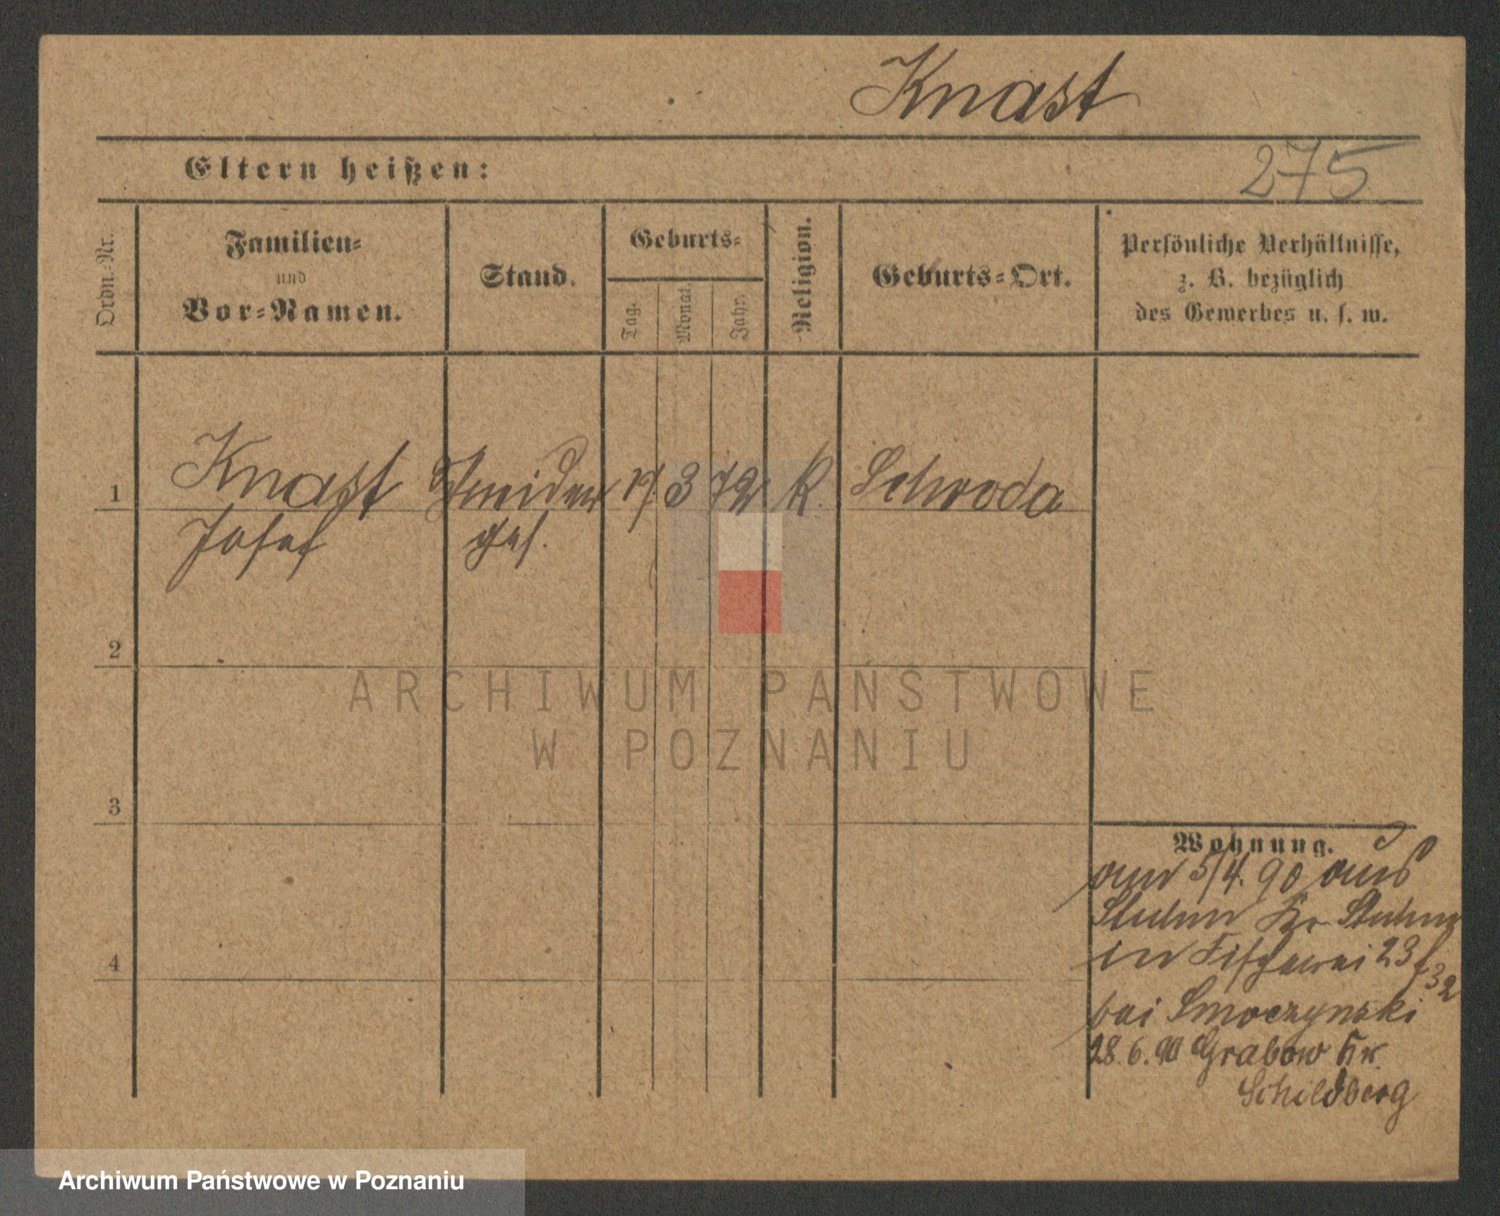 Knast
Eltern heißen:
275
Ordn.-Nr.
Familien-
und
Vor-Namen.
Stand.
Geburts-
Tag.
Monat.
Jahr.
Religion.
Geburts-Ort.
Persönliche Verhältnisse,
z. B. bezüglich
des Gewerbes u. s. w.
1
Knast
Josef
Schneider
ges.
17.
3
72
K.
Schroda
2
ARCHIWUM PAŃSTWOWE
W POZNANIU
3
4
Wohnung.
am 5/4. 90 aus
Stuhm Kr Stuhm
in Fischerei 23
bei Smoczynski
28.6.90 Grabow Kr.
Schildberg
Archiwum Państwowe w Poznaniu